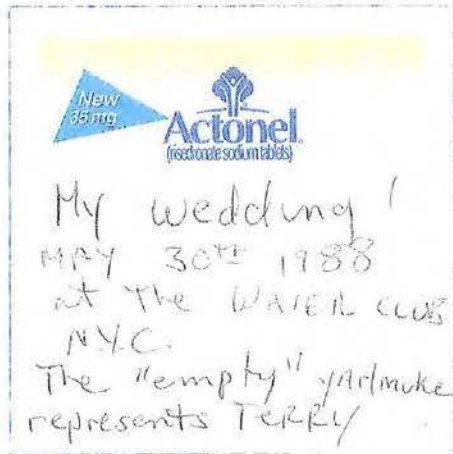 New
35 mg
Actonel
(risedronate sodium tablets)
My wedding!
MAY 30TH 1988
at The WATER CLUB
N.Y.C.
The "empty" yarlmuke
represents TERRY